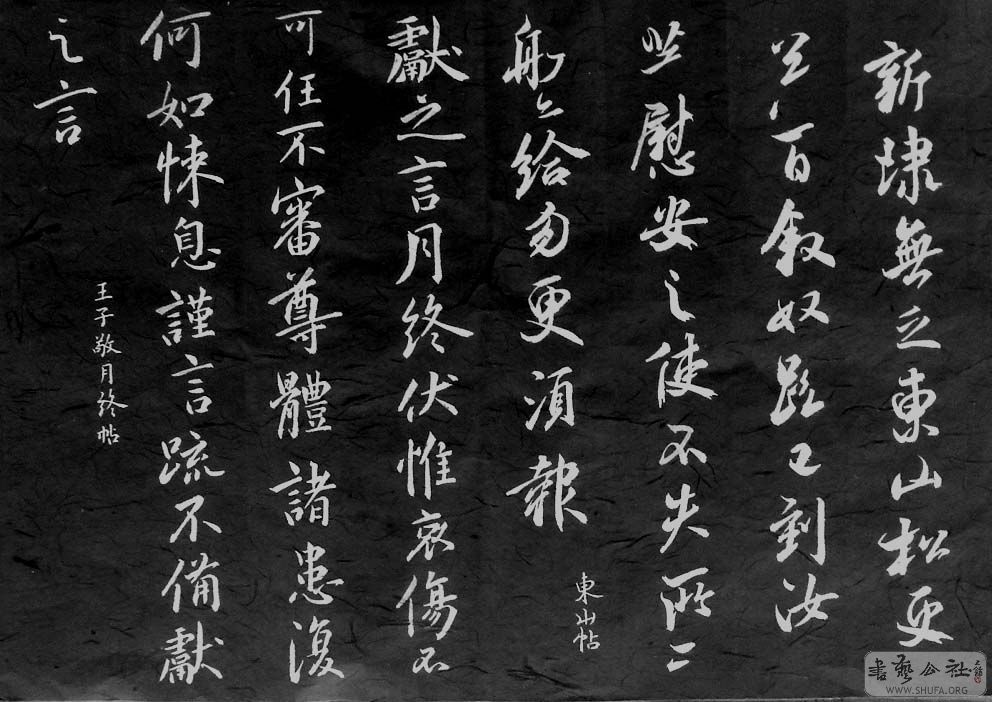 新埭無乏東山松更
百叙奴已到汝
慰安之使不失所二
給勿更須報
東山帖
獻之言月終伏惟哀傷不
可任不審尊體諸患復
何如悚息謹言疏不備獻
之言
王子敬月終帖
書藝公社
WWW.SHUFA.ORG